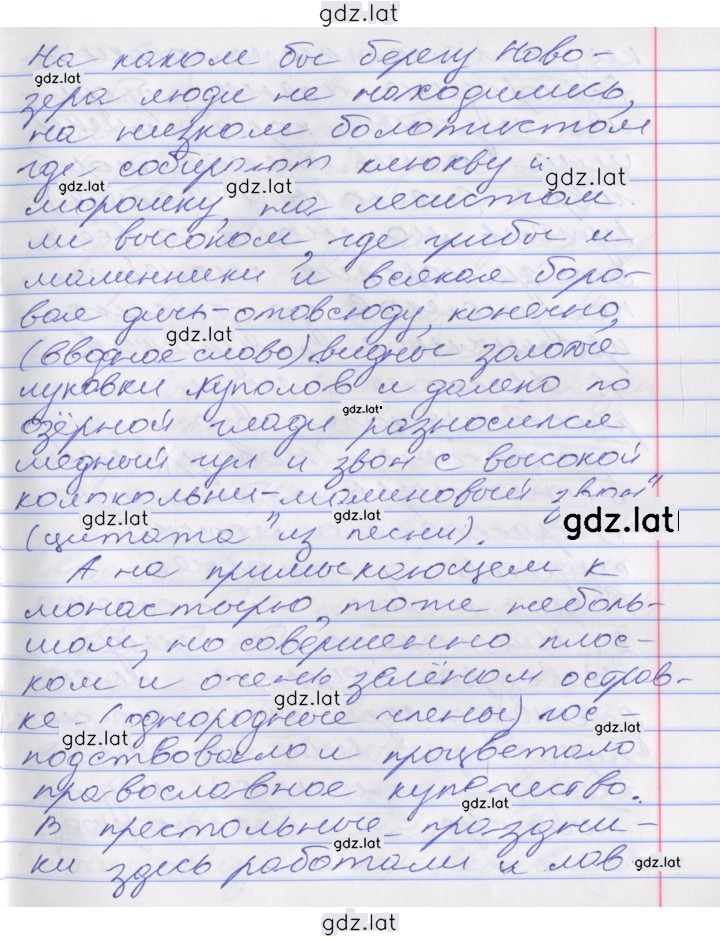 gdz.lat
На каком бы берегу Ново-
gdz.lat
зера люди не находились,
на низком болотистом
где собирают клюкву и
gdz.lat gdz.lat gdz.lat
морошку, на лесистом
ли высоком, где грибы и
малинники и всякая боро-
вая дичь-отовсюду, конечно,
gdz.lat
(вводное слово) видны золотые
луковки куполов и далеко по
gdz.lat
озёрной глади разносился
медный гул и звон с высокой
колокольни-малиновый звон"
gdz.lat gdz.lat gdz.lat
(цитата" из песни).
А на примыкающем к
монастырю, тоже неболь-
шом, но совершенно плос-
ком и очень зелёном остров-
gdz.lat
ке - (однородные члены) гос-
gdz.lat gdz.lat
подствовало и процветало
православное купечество.
gdz.lat
В престольные праздни-
ки здесь работали и лав
gdz.lat gdz.lat
gdz.lat